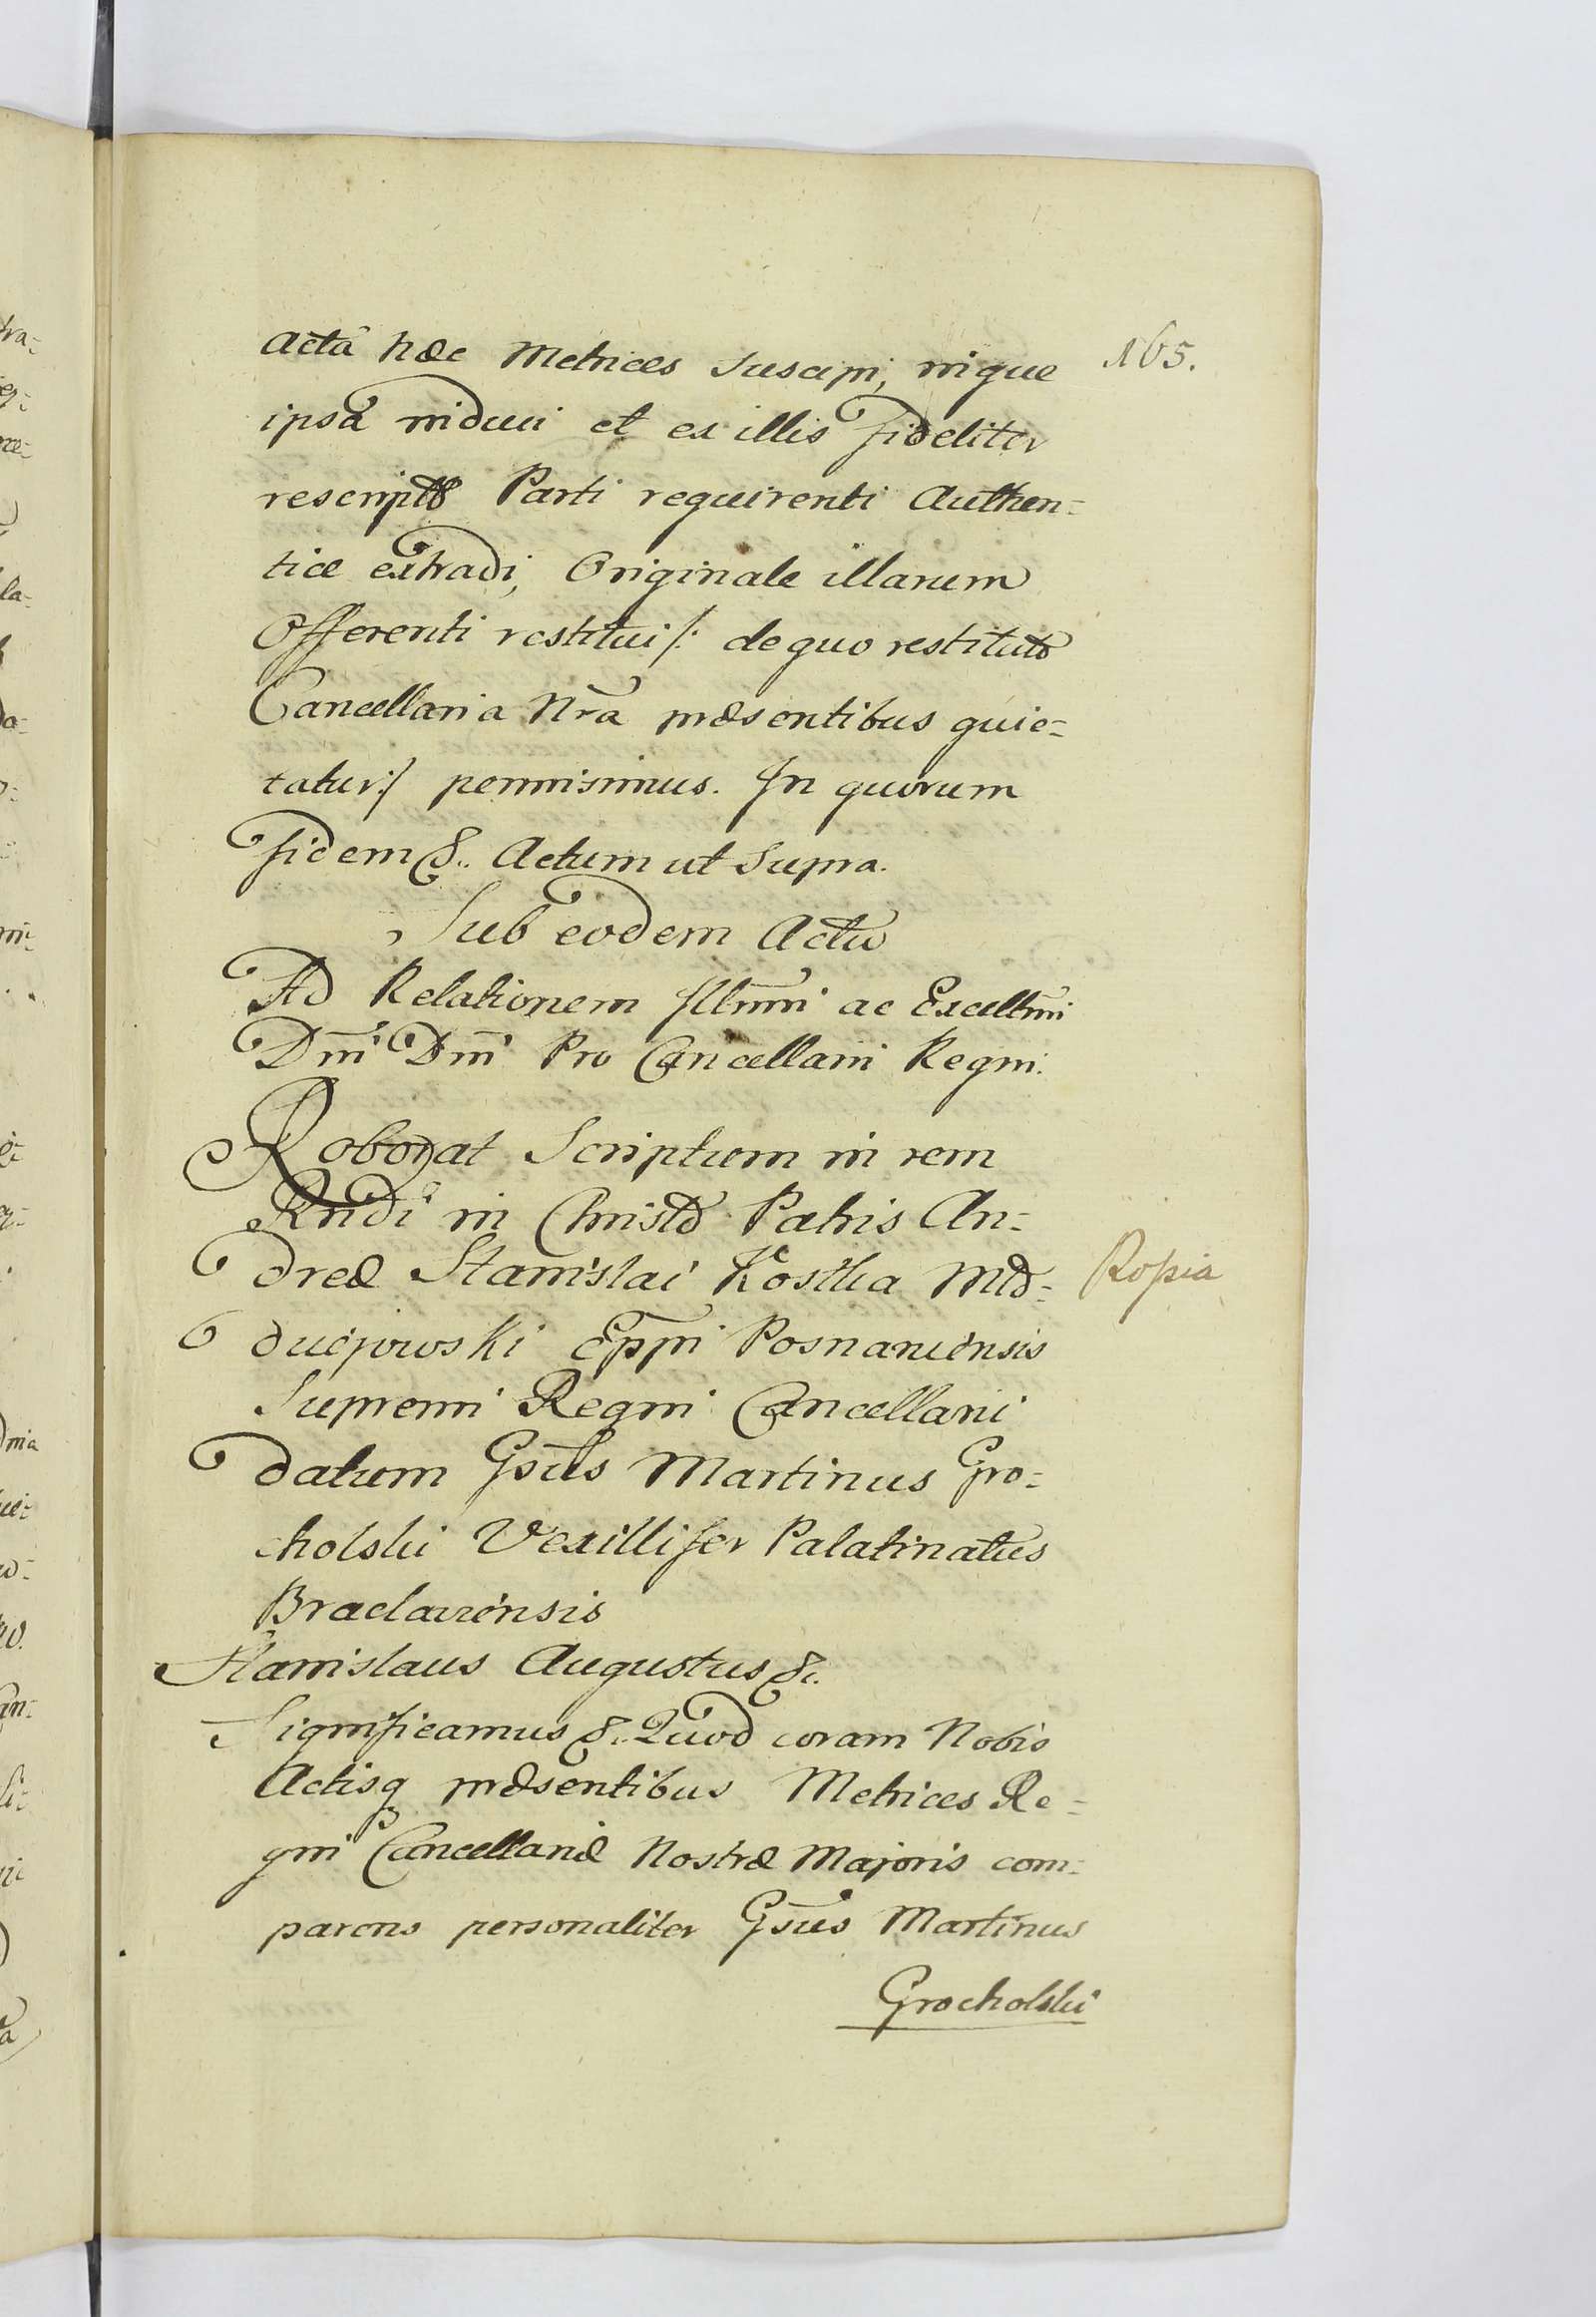 165.
Acta hæc Metrices suscipi, inque
ipsa induci et ex illis fideliter
rescripto Parti requirenti Authen=
tice extradi, Originale illarum
Offerenti restitui /: de quo restituto
Cancellaria Nra præsentibus quie=
tatur :/ permisimus. In quorum
fidem &c. Actum ut supra.
Sub eodem Actu
Ad Relationem Illmi ac Excellmi
Dni Dni Pro Cancellarii Regni.
Roborat Scriptum in rem
Rndi in Christo Patris An=
dreæ Stanislai Kostka Mło=
Ropia
dziejowski Eppi Posnaniensis
Supremi Regni Cancellarii
datum Gsus Martinus Gro=
cholski Vexillifer Palatinatus
Braclaviensis
Stanislaus Augustus &c.
Significamus &c. Quod coram Nobis
Actisq præsentibus Metrices Re=
gni Cancellariæ Nostræ Majoris com=
parens personaliter Gsus Martinus
Grocholski